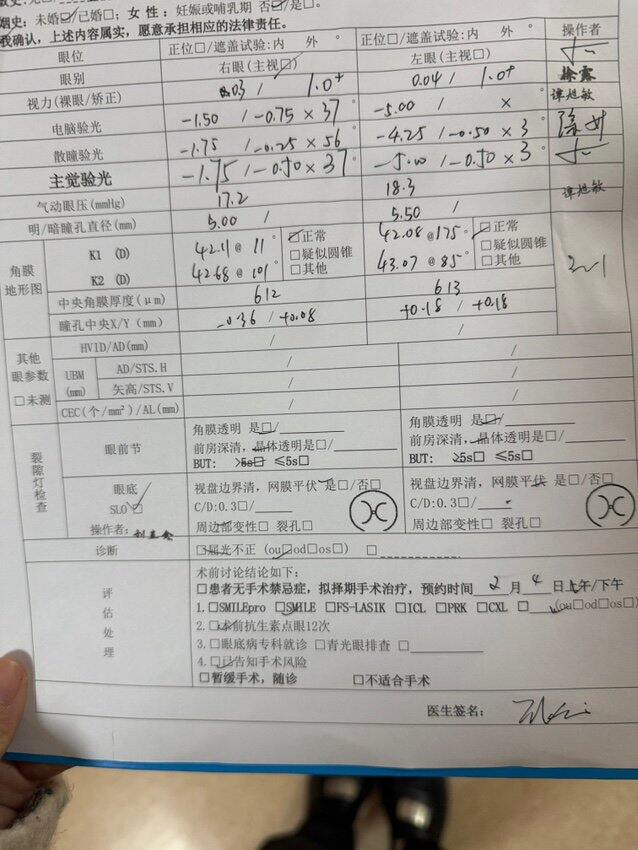 烟史：未婚☑已婚□；女 性：妊娠或哺乳期 否☑是□。
我确认，上述内容属实，愿意承担相应的法律责任。
眼位 正位□/遮盖试验:内 外 ° 正位□/遮盖试验:内 外 ° 操作者
眼别 右眼(主视☑) 左眼(主视□)
视力(裸眼/矫正) 0.03 / 1.0+ 0.04 / 1.0+
电脑验光 -1.50 / -0.75 × 37° -5.00 / × ° 谭旭敏
散瞳验光 -1.75 / -0.25 × 56° -4.25 / -0.50 × 3°
主觉验光 -1.75 / -0.50 × 37° -5.00 / -0.50 × 3°
气动眼压(mmHg) 17.2 18.3 谭旭敏
明/暗瞳孔直径(mm) 5.00 / 5.50 /
角膜地形图
K1 (D) 42.11 @ 11° ☑正常 □疑似圆锥 □其他 42.08 @ 175° ☑正常 □疑似圆锥 □其他
K2 (D) 42.68 @ 101° 43.07 @ 85°
中央角膜厚度(μm) 612 613
瞳孔中央X/Y (mm) -0.36 / +0.08 +0.18 / +0.18
其他眼参数 □未测
HVID/AD(mm) / /
UBM (mm) AD/STS.H / /
矢高/STS.V / /
CEC(个/mm²)/AL(mm) / /
裂隙灯检查
眼前节 角膜透明 是☑/ 角膜透明 是☑/
前房深清，晶体透明是□/ 前房深清，晶体透明是□/
BUT: >5s□ ≤5s□ BUT: >5s□ ≤5s□
眼底 视盘边界清，网膜平伏 是□/否□ 视盘边界清，网膜平伏 是□/否□
SLO☑ C/D:0.3□/ C/D:0.3□/
操作者: 周边部变性□ 裂孔□ 周边部变性□ 裂孔□
诊断 ☑屈光不正 (ou☑od□os□) □
评估处理
术前讨论结论如下：
□患者无手术禁忌症，拟择期手术治疗，预约时间 2 月 4 日上午/下午
1.□SMILEpro ☑SMILE □FS-LASIK □ICL □PRK □CXL □ (ou□od□os□)
2.☑术前抗生素点眼12次
3.□眼底病专科就诊 □青光眼排查 □
4.☑已告知手术风险
□暂缓手术，随诊 □不适合手术
医生签名：